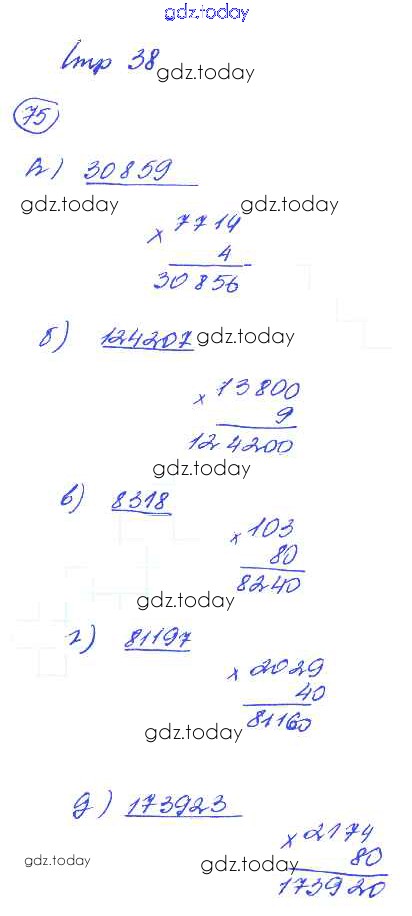 gdz.today
Стр 38
gdz.today
75
а) 30859
gdz.today gdz.today
× 7714
4
30856
б) 124207 gdz.today
× 13800
9
124200
gdz.today
в) 8318
× 103
80
8240
gdz.today
г) 81197
× 2029
40
81160
gdz.today
д) 173923
× 2174
gdz.today gdz.today 80
173920